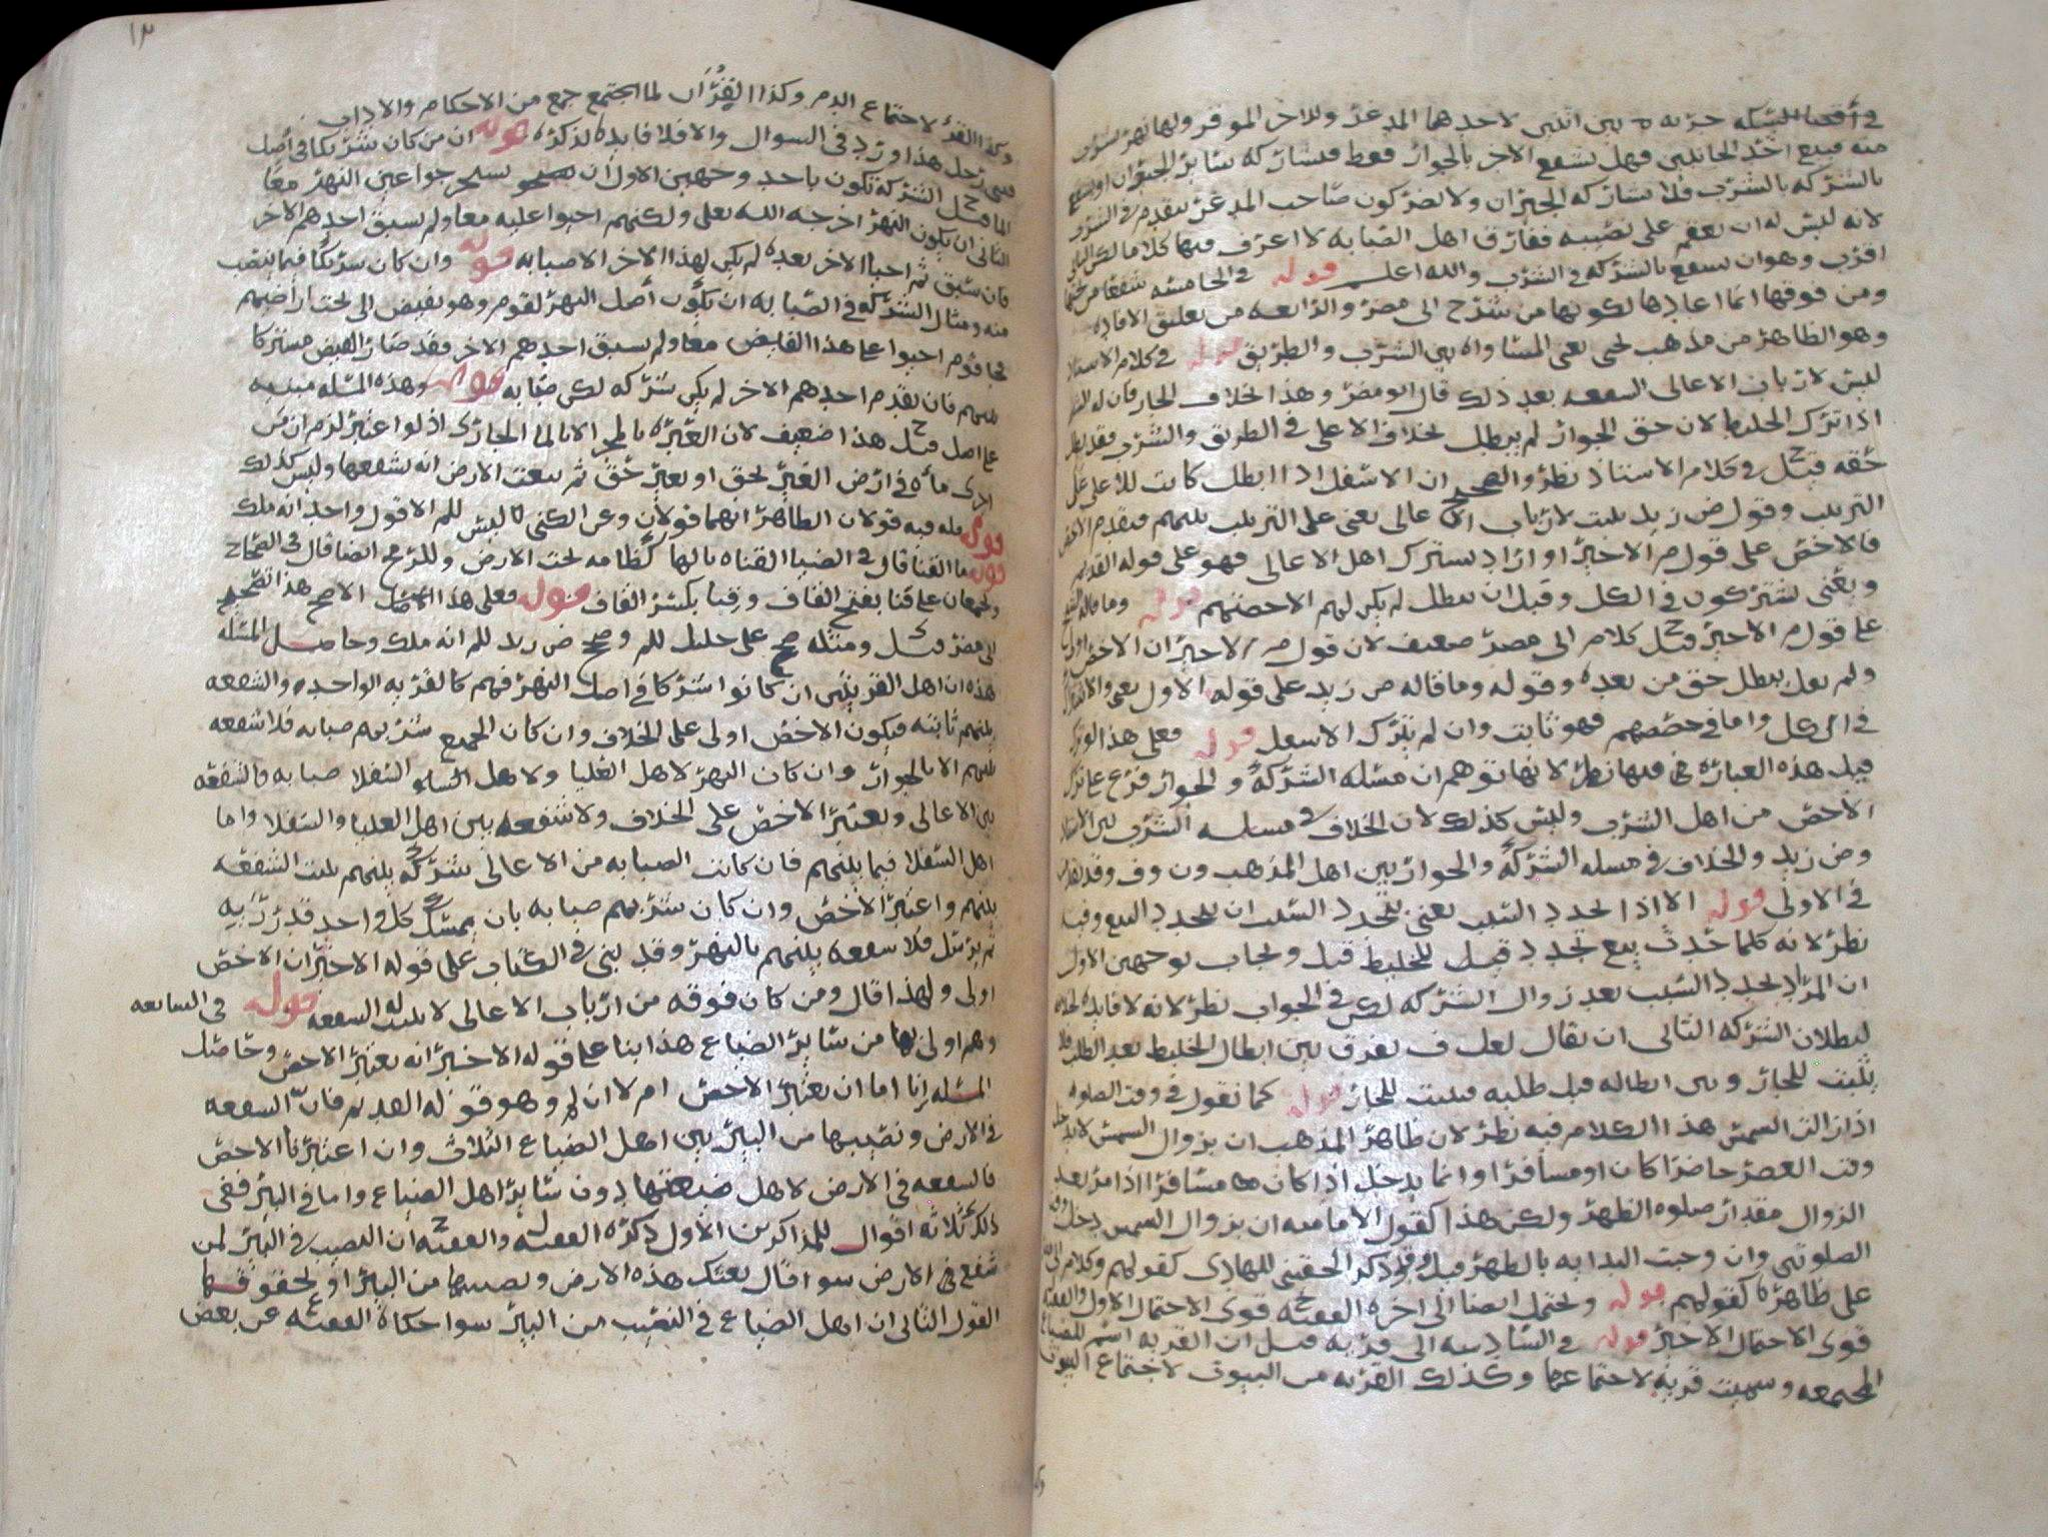 منه فبيع احد الحانبين فهل يشفع الاخر بالجوار فقط فيشاركه سائر الجيران او يشفع
بالشركه بالشرب فلا يشاركه الجيران ولا يضر كون صاحب المدغر يتقدم في الشرب
لانه ليس له ان يعقم على نصيبه ففارق اهل الصبابه لا اعرف فيها كلاما لكن الثاني
اقرب وهو ان يشفع بالشركه في الشرب والله اعلم قوله في الخامسه شفعا من تحتها
ومن فوقها انما اعادها لكونها من شرح ابي مضر والرابعه من تعليق الافاده
وهو الظاهر من مذهب يحيى يعني المساواه بين الشرب والطريق قوله في كلام الاستاذ
ليس لارباب الاعالي الشفعه بعد ذلك قال ابو مضر وهذا بخلاف الجار فان له
اذا ترك الخليط لان حق الجوار لم يبطل بخلاف الاعلى في الطريق والشرب فقد بطل
حقه قيل في كلام الاستاذ نظر والصحيح ان الاسفل اذا ابطل كانت للاعلى على
الترتيب وقول ض زيد يثبت لارباب الاعالي يعني على الترتيب بينهم فيقدم الاخص
فالاخص على قول م الاخير او اراد يشترك اهل الاعالي فهو على قوله القديم
ويعني يشتركون في الكل وقبل ان يبطل لم يكن لهم الا حصتهم قوله وما قاله
على قول م الاخير قيل كلام ابي مضر ضعيف لان قول م الاخير ان الاخص اولى
ولم يقل يبطل حق من بعده وقوله وما قاله ض زيد على قوله الاول يعني والاشتراك
في الكل واما في حصصهم فهو ثابت وان لم يترك الاسفل قوله فعلى هذا لو ترك
قيل هذه العباره فيها نظر لانها توهم ان مسله الشركة والجوار فرع على ترك
الاخص من اهل الشرب وليس كذلك لان الخلاف في مسله الشرب بين الاستاذ
وض زيد والخلاف في مسله الشركة والجوار بين اهل المذهب و ن و ف وقد تقدم
في الاولى قوله الا اذا تجدد السبب يعني بتجدد السبب ان يتجدد البيع وفيه
نظر لانه كلما حدث بيع تجدد قيل للخليط قبل ويجاب بوجهين الاول
ان المراد بتجدد السبب بعد زوال الشركه لكن في الجواب نظر لانه لا فايده
لبطلان الشركه الثاني ان يقال لعل ف يفرق بين ابطال الخليط بعد الطلب فلا
يثبت للجار وبين ابطاله قبل طلبه فيثبت للجار قوله كما نقول في وقت الصلوه
اذا زالت الشمس هذا الكلام فيه نظر لان ظاهر المذهب ان بزوال الشمس لا يدخل
وقت العصر حاضرا كان او مسافرا وانما يدخل اذا كان مسافرا اذا مر بعد
الزوال مقدار صلوه الظهر ولكن هذا كقول الاماميه ان بزوال الشمس دخل وقت
الصلوتين وان وجبت البدايه بالظهر قيل وقد ذكر الحقيني للهادي كقولهم وكلام
على ظاهره كقولهم قوله ويحتمل ايضا الى اخره الفقيه ح قوى الاحتمال الاول
قوى الاحتمال الاخير قوله في السادسه الى قريه قيل ان القريه اسم للضياع
المجتمعه وسميت قريه لاجتماعها وكذلك القريه من البيوت لاجتماع البيوت
وكذا القرء لاجتماع الدم وكذا القرآن لما اجتمع جمع من الاحكام والاداب
هذا ورد في السوال والا فلا فايده لذكره قوله ان من كان شريكا في اصل
الما قيل الشركه تكون باحد وجهين الاول ان يستخرجوا عين النهر معا
الثاني ان يكون النهر اخرجه الله تعالى ولكنهم احيوا عليه معا ولم يسبق احدهم الاخر
فان سبق ثم احيا الاخر بعده لم يكن لهذا الاخر الا صبابه قوله وان كان شريكا فيما ينصب
منه ومثال الشركه في الصبابه ان يكون اصل النهر لقوم وهو يفيض الى تحت اراضيهم
فجا قوم احيوا على هذا الفايض معا ولم يسبق احدهم الاخر فقد صار الفيض مشتركا
بينهم فان تقدم احدهم الاخر لم يكن شركه لكن صبابه قوله وهذه المسله مبنيه
على اصل قيل ح هذا ضعيف لان العبره بالمجرى لا بالما الجاري اذ لو اعتبر لزم ان من
اجرى ماه في ارض الغير بحق او بغير حق ثم بيعت الارض انه يشفعها وليس كذلك
قوله فيه قولان الظاهر انهما قولان وعن الكني ليس للم الا قول واحد انه ملك
قوله ما القنا قال في الضيا القناه بالها كظامه تحت الارض وللرمح ايضا قال في الصحاح
ويجمعان على قنا بفتح القاف وقِنا بكسر القاف قوله فعلى هذا الاصل الاصح هذا تصحيح
ابي مضر قيل ومثله صحح على خليل للم وصحح ض زيد للم انه ملك وحاصل المسله
هذه ان اهل القريتين ان كانوا شركا في اصل النهر فهم كالقريه الواحده والشفعه
بينهم ثابته فيكون الاخص اولى على الخلاف وان كان الجميع شربهم صبابه فلا شفعه
بينهم الا بالجوار وان كان النهر لاهل العليا ولاهل السفلا صبابه فالشفعه
بين الاعالي ويعتبر الاخص على الخلاف ولا شفعه بين اهل العليا والسفلا واما
اهل السفلا فيما بينهم فان كانت الصبابه من الاعالي شركة بينهم ثبتت الشفعه
بينهم واعتبر الاخص وان كان شربهم صبابه بان يمسك كل واحد قدر ريه
ثم يرسل فلا شفعه بينهم بالنهر وقد بنى في الكتاب على قوله الاخير ان الاخص
اولى ولهذا قال ومن كان فوقه من ارباب الاعالي لا يثبت له الشفعه قوله في السابعه
وهم اولى بها من سائر الضياع هذا بنا على قوله الاخير انه يعتبر الاخص وحاصل
المسله انا اما ان يعتبر الاخص ام لا ان لم وهو قوله القديم فان الشفعه
في الارض ونصيبها من البير بين اهل الضياع الثلاث وان اعتبرنا الاخص
فالشفعه في الارض لاهل ضيعتها دون سائر اهل الضياع واما في البير ففي
ذلك ثلاثه اقوال للمذاكرين الاول ذكره الفقيه ل والفقيه ح ان النصيب في البير لمن
شفع في الارض سوا قال بعتك هذه الارض ونصيبها من البير او بحقوقها
القول الثاني ان اهل الضياع في النصيب من البير سوا حكاه الفقيه ع عن بعض